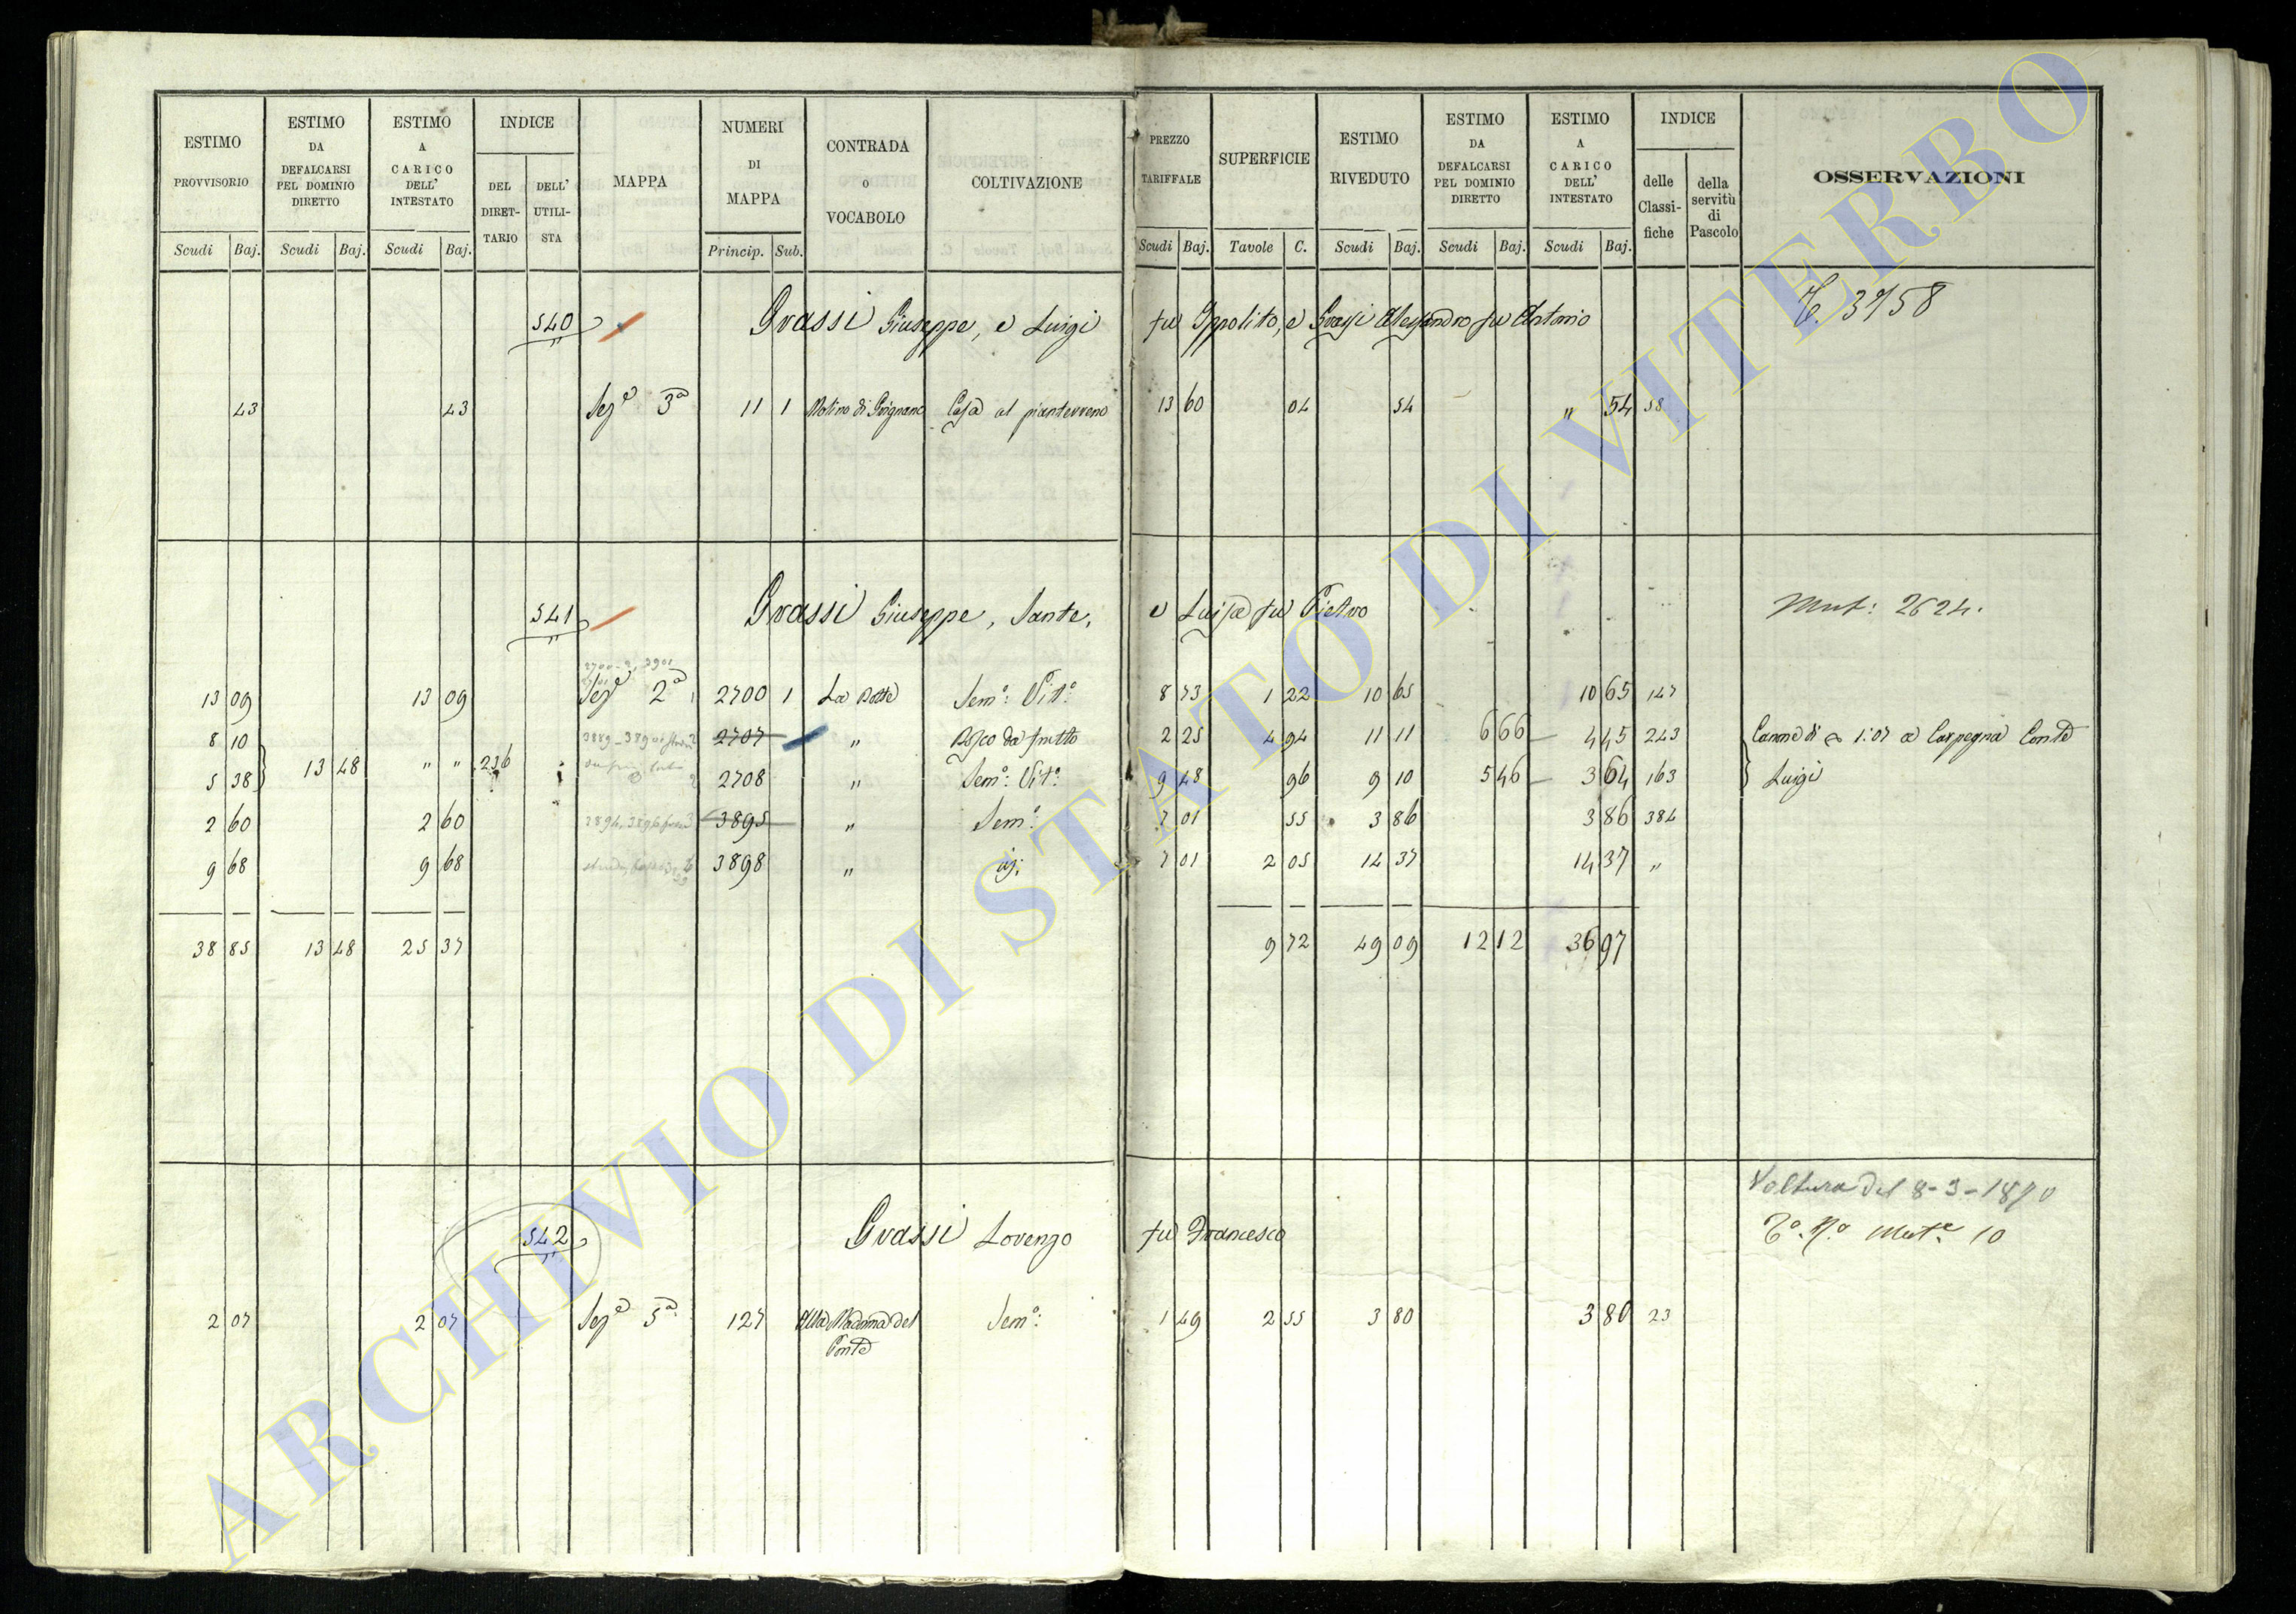 ESTIMO PROVVISORIO
ESTIMO DA DEFALCARSI PEL DOMINIO DIRETTO
ESTIMO A CARICO DELL' INTESTATO
INDICE
DEL DIRET-TARIO
DELL' UTILI-STA
MAPPA
NUMERI DI MAPPA
CONTRADA O VOCABOLO
COLTIVAZIONE
PREZZO TARIFFALE
SUPERFICIE
ESTIMO RIVEDUTO
ESTIMO DA DEFALCARSI PEL DOMINIO DIRETTO
ESTIMO A CARICO DELL' INTESTATO
INDICE
delle Classi-fiche
della servitù di Pascolo
OSSERVAZIONI
Scudi Baj. Scudi Baj. Scudi Baj. Princip. Sub. Scudi Baj. Tavole C. Scudi Baj. Scudi Baj. Scudi Baj.
540 Grassi Giuseppe, e Luigi fu Ippolito, e Grassi Alessandro fu Antonio 3758
43 43 Sez.e 3a 11 1 Molino di Grignano Casa al pianterreno 13 60 04 54 " 54 58
541 Grassi Giuseppe, Sante, e Luisa fu Pietro Mut: 2624.
13 09 13 09 Sez.e 2a 2700 1 La Botte Sem.o: Vit.o: 8 73 1 22 10 65 10 65 147
8 10 2707 " Bosco da frutto 2 25 4 94 11 11 6 66 4 45 243 Canne di 1:07 a Carpegna Conte
5 38 13 48 " " 236 2708 " Sem.o: Vit.o: 9 48 96 9 10 5 46 3 64 163 Luigi
2 60 2 60 3895 " Sem.o: 7 01 55 3 86 3 86 384
9 68 9 68 3898 " id: 7 01 2 05 14 37 14 37 "
38 85 13 48 25 37 9 72 49 09 12 12 36 97
Voltura del 8-3-1870
542 Grassi Lorenzo fu Francesco Mut.e 10
2 07 2 07 Sez.e 5a 127 Alla Madonna del Ponte Sem.o: 1 49 2 55 3 80 3 80 23
ARCHIVIO DI STATO DI VITERBO